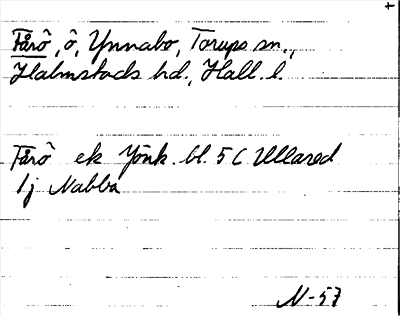 Fårö, ö, Ynnabo, Torups sn.,
Halmstads hd., Hall. l.
Fårö ek Jönk. bl. 5 C Ullared
1j Nabba
N-57